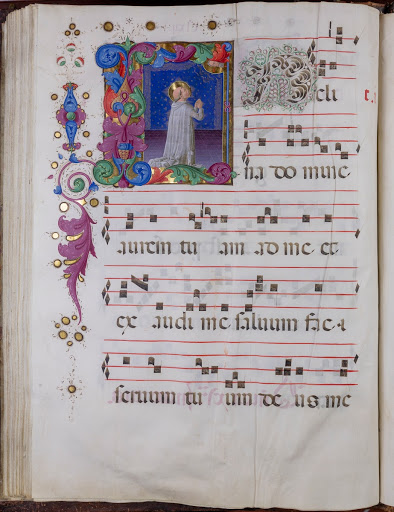 INcli
na domine
aurem tu am ad me et
ex audi me saluum fac
seruum tu um de us me